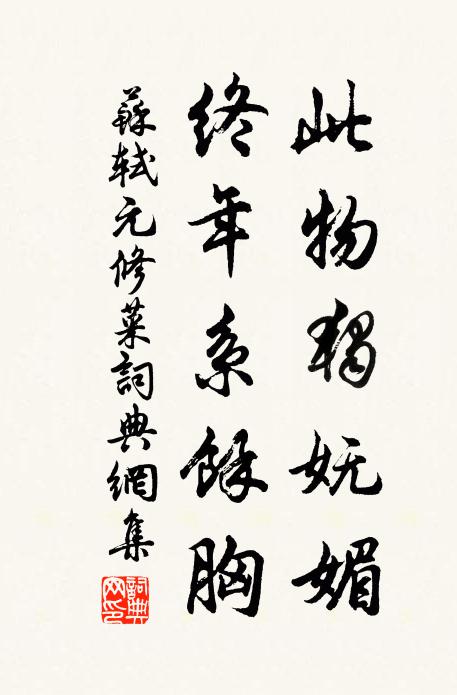 此物獨妩媚
終年系餘胸
蘇軾元修菜詞典網集
詞典網印